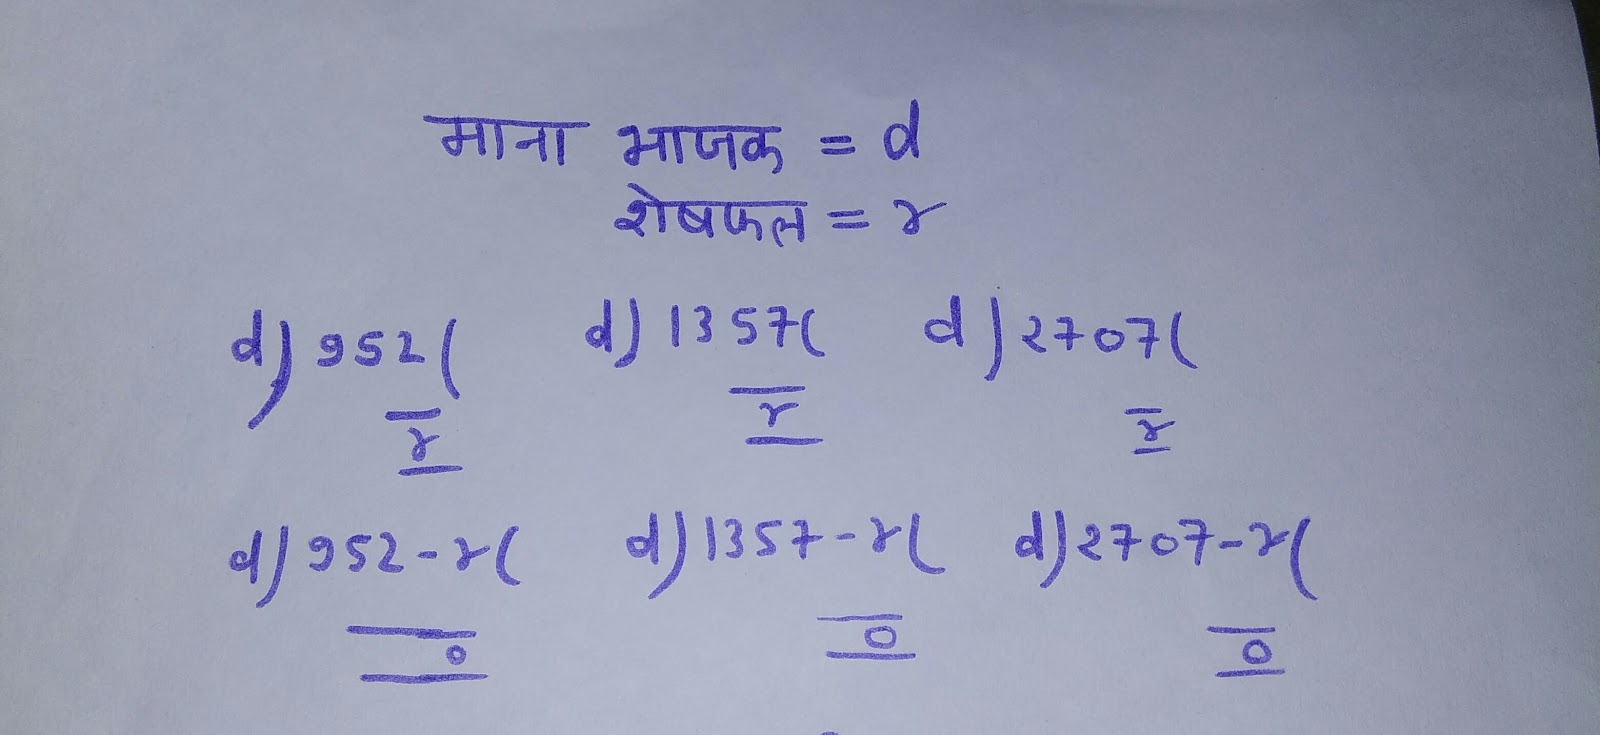 माना भाजक = d
शेषफल = r
d)952( d)1357( d)2707(
r r r
d)952-r( d)1357-r( d)2707-r(
0 0 0